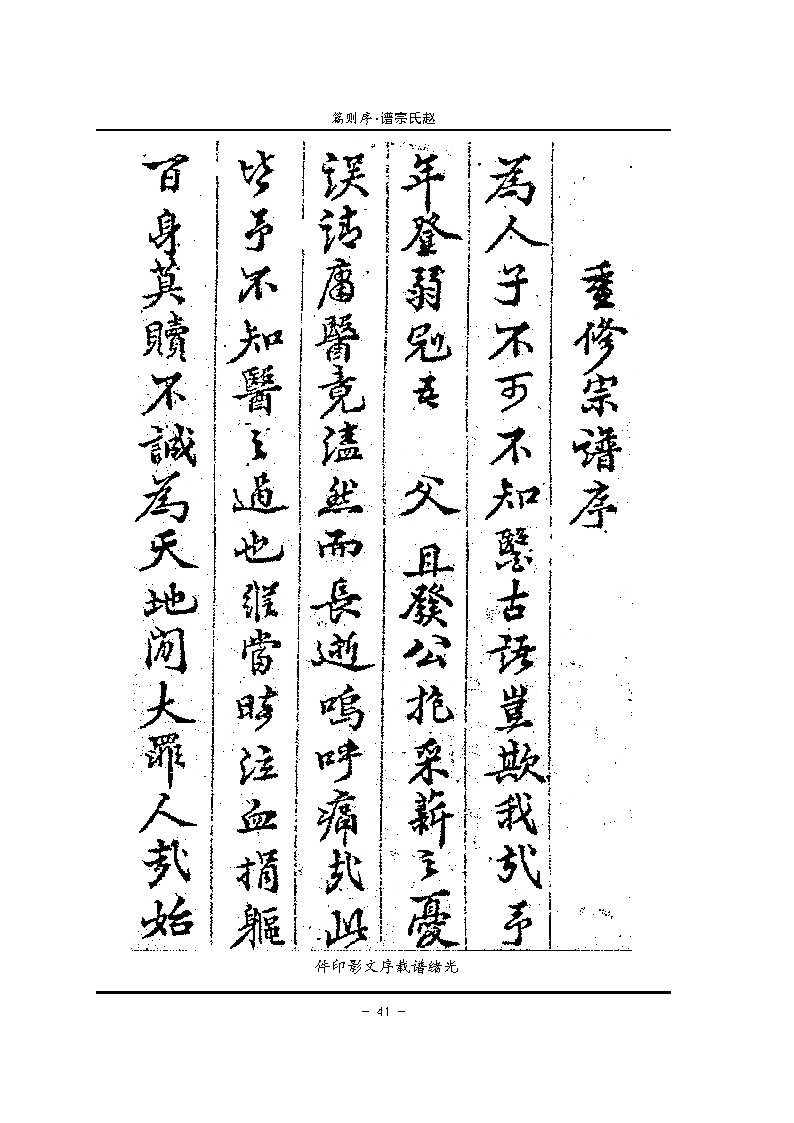 篇则序·谱宗氏赵
重修宗譜序
為人子不可不知醫古語豈欺我哉予
年登弱冠吾 父 且發公抱采薪之憂
誤請庸醫竟溘然而長逝嗚呼痛哉此
皆予不知醫之過也縱當時泣血捐軀
百身莫贖不誠為天地間大罪人哉始
件印影文序载谱绪光
- 41 -